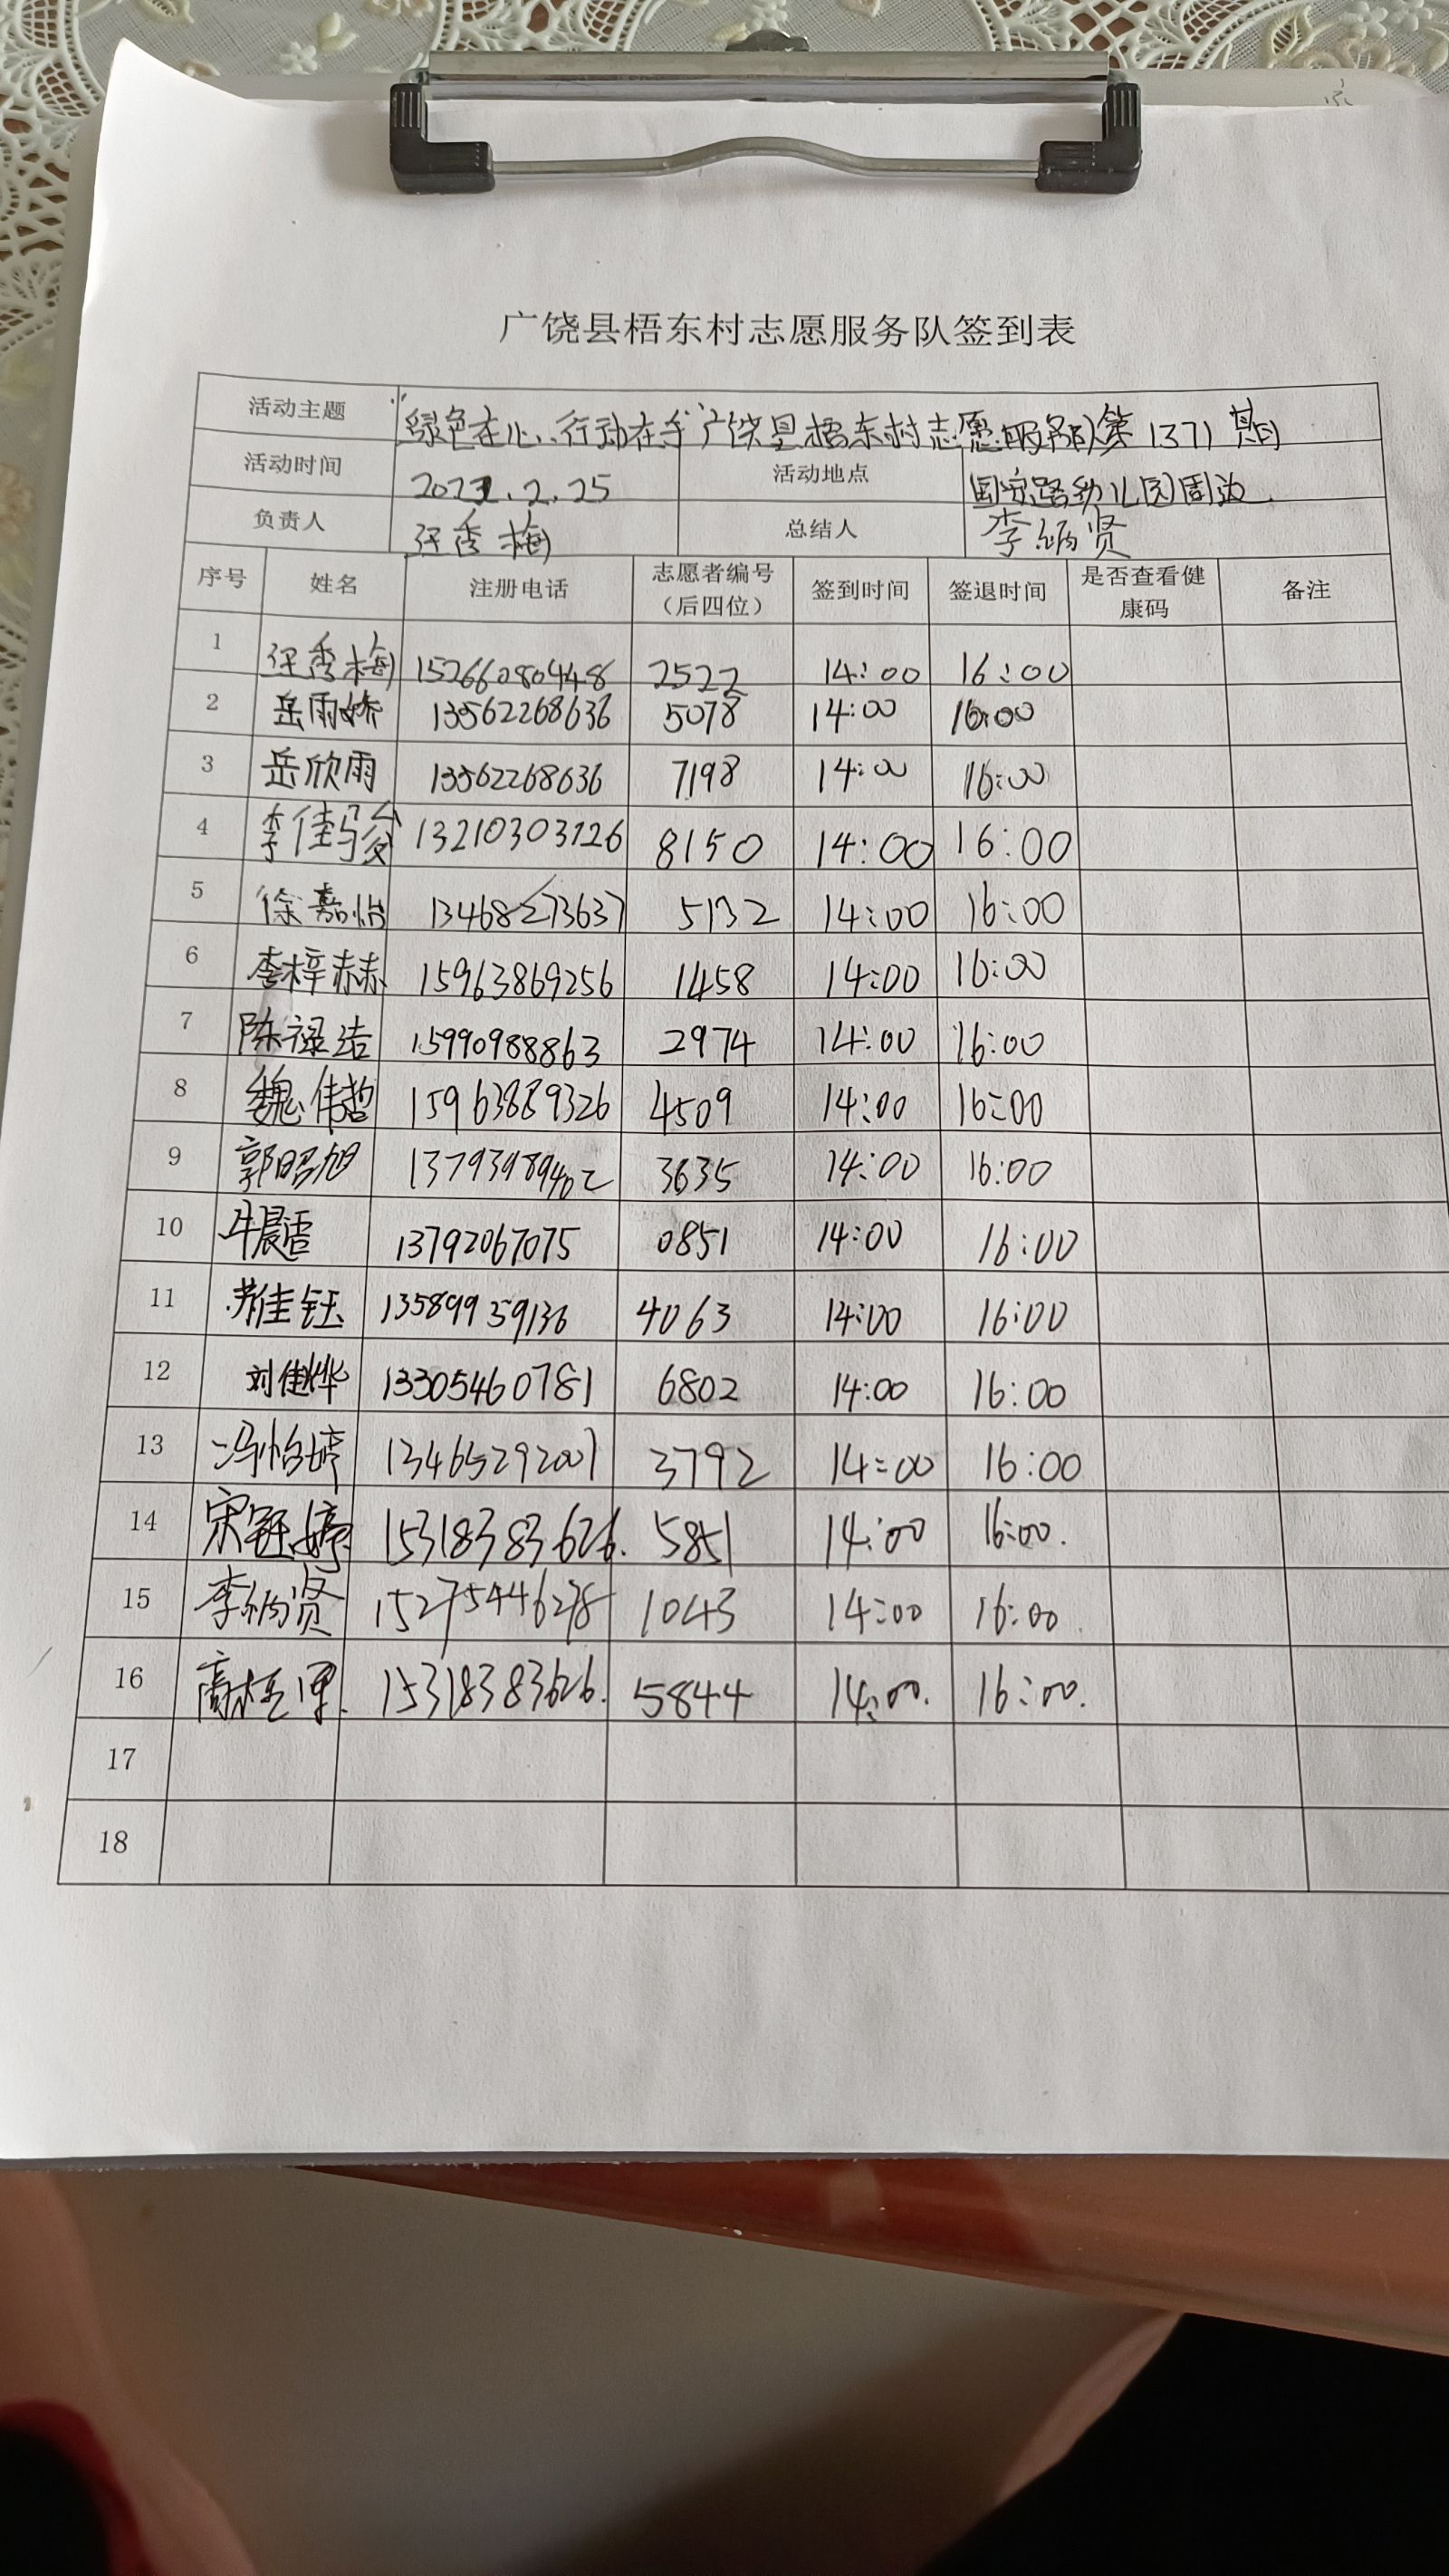 广饶县梧东村志愿服务队签到表
活动主题 "绿色在心、行动在手"广饶县梧东村志愿服务队第1371期
活动时间 2023.2.25 活动地点 国安路幼儿园周边.
负责人 秀梅 总结人 李炳贤
序号 姓名 注册电话 志愿者编号（后四位） 签到时间 签退时间 是否查看健康码 备注
1 秀梅 15266080448 2522 14:00 16:00
2 岳雨娇 13562268636 5078 14:00 16:00
3 岳欣雨 13562268636 7198 14:00 16:00
4 李佳骏 13210303126 8150 14:00 16:00
5 徐嘉怡 13468273637 5132 14:00 16:00
6 李梓赫 15963869256 1458 14:00 16:00
7 陈禄洁 15990988863 2974 14:00 16:00
8 魏伟哲 15963889326 4509 14:00 16:00
9 郭昭旭 13793989402 3635 14:00 16:00
10 牛晨 13792067075 0851 14:00 16:00
11 佳钰 13589959136 4063 14:00 16:00
12 刘佳烨 13305460781 6802 14:00 16:00
13 冯怡婷 13465292007 3792 14:00 16:00
14 宋钰婷 15318383626. 5851 14:00 16:00.
15 李炳贤 15275446278 1043 14:00 16:00.
16 高桂军. 15318383626. 5844 14:00. 16:00.
17
18